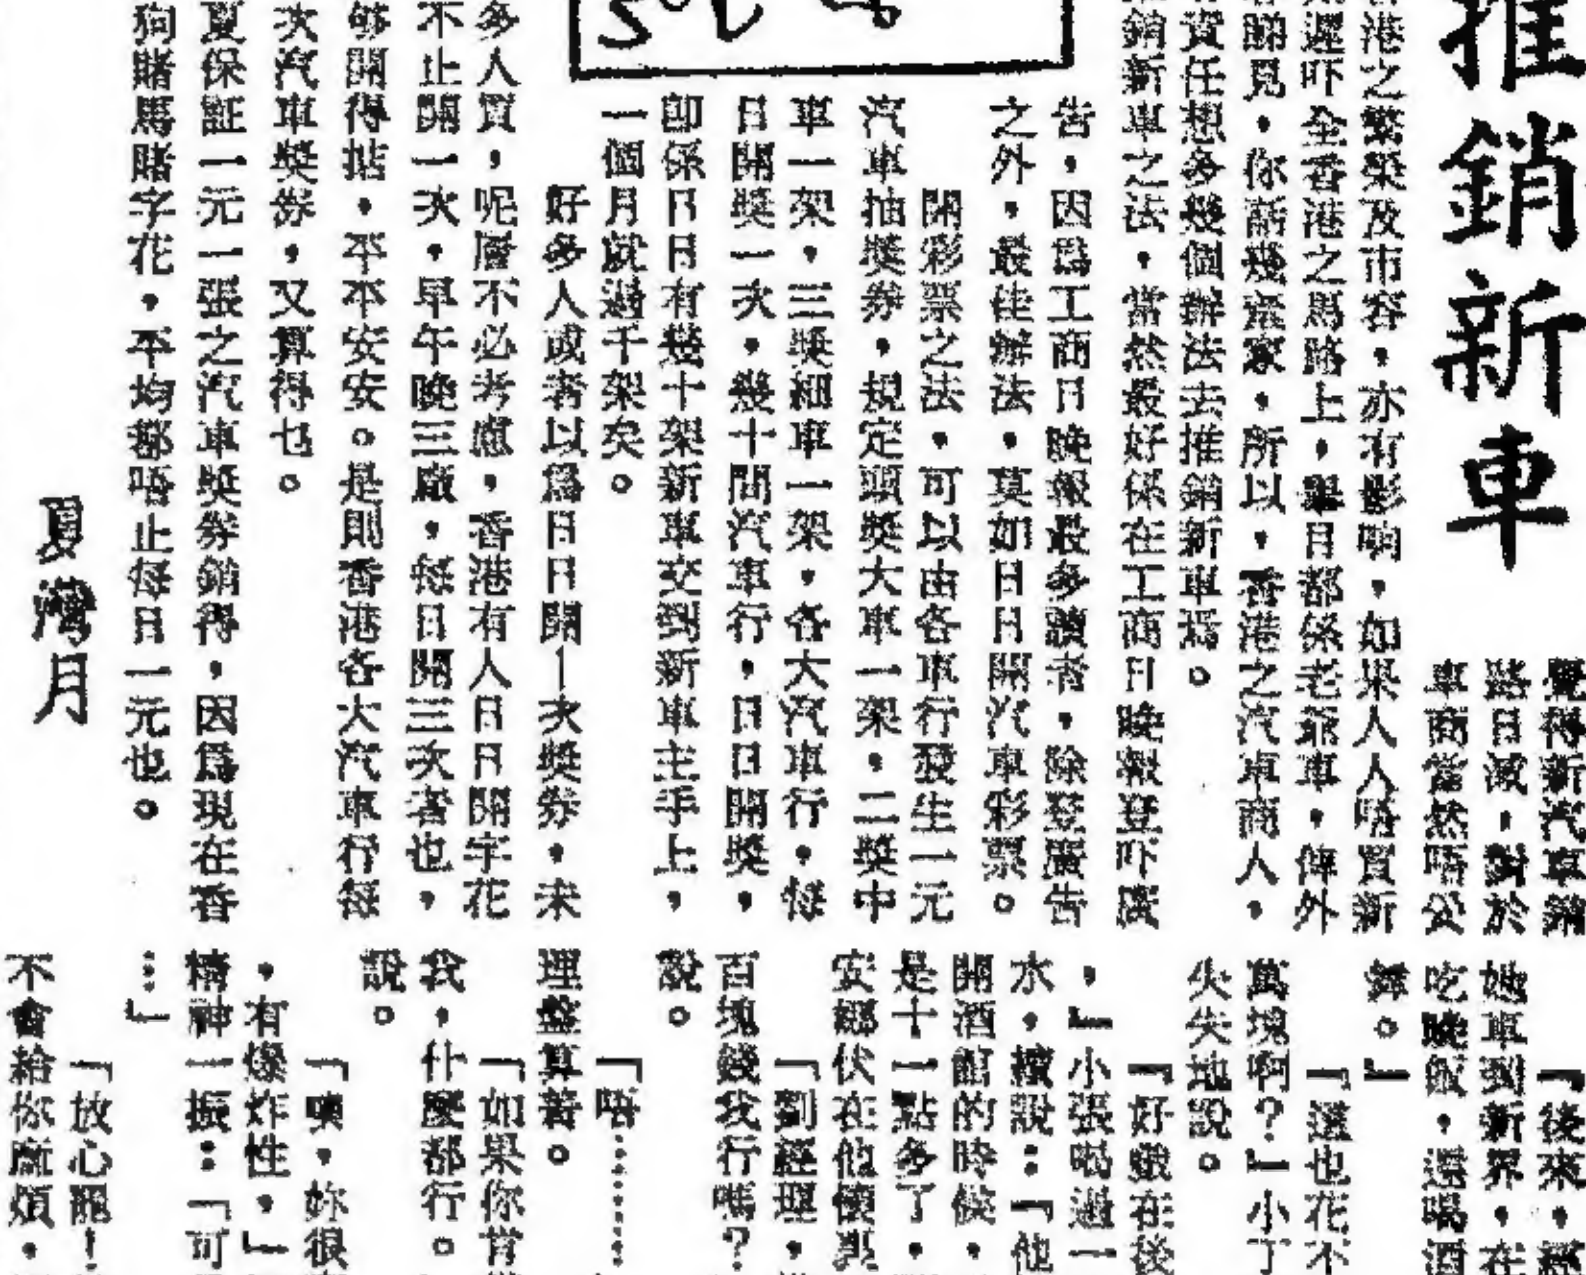 推銷新車
覺得新汽車銷
路日減，對於
車商當然唔公
港之繁榮及市容，亦有影响，如果人人唔買新
遲吓全香港之馬路上，舉目都係老爺車，俾外
睇見，你話幾寒家，所以，香港之汽車商人，
責任想多幾個辦法去推銷新車焉。
銷新車之法，當然最好係在工商日晚報登吓廣
告，因爲工商日晚報最多讀者，除登廣告
之外，最佳辦法，莫如日日開汽車彩票。
開彩票之法，可以由各車行發生一元
汽車抽獎券，規定頭獎大車一架，二獎中
車一架，三獎細車一架，各大汽車行，每
日開獎一次，幾十間汽車行，日日開獎，
卽係日日有幾十架新車交到新車主手上，
一個月就過千架矣。
好多人或者以爲日日開一次獎券，未
多人買，呢層不必考慮，香港有人日日開字花
不止開一次，早午晚三廠，每日開三次者也，
够開得掂，平平安安。是則香港各大汽車行每
次汽車獎券，又算得乜。
夏保証一元一張之汽車獎券銷得，因爲現在香
狗賭馬賭字花，平均都唔止每日一元也。
夏灣月
『後來，
她車到新界，在
吃晚飯，還喝酒
舞。』
『還也花不
萬塊啊？』小丁
失失地說。
『好戲在後
，』小張喝過一
水，續說：『他
開酒館的時候，
是十一點多了，
安經伏在他懷裏
『劉經理，
百塊錢我行嗎？
說。
『唔………
理盤算着。
『如果你肯
我，什麼都行。
說。
『噢，妳很
，有爆炸性，』
精神一振：『可
…』
『放心吧！
不會給你麻煩，